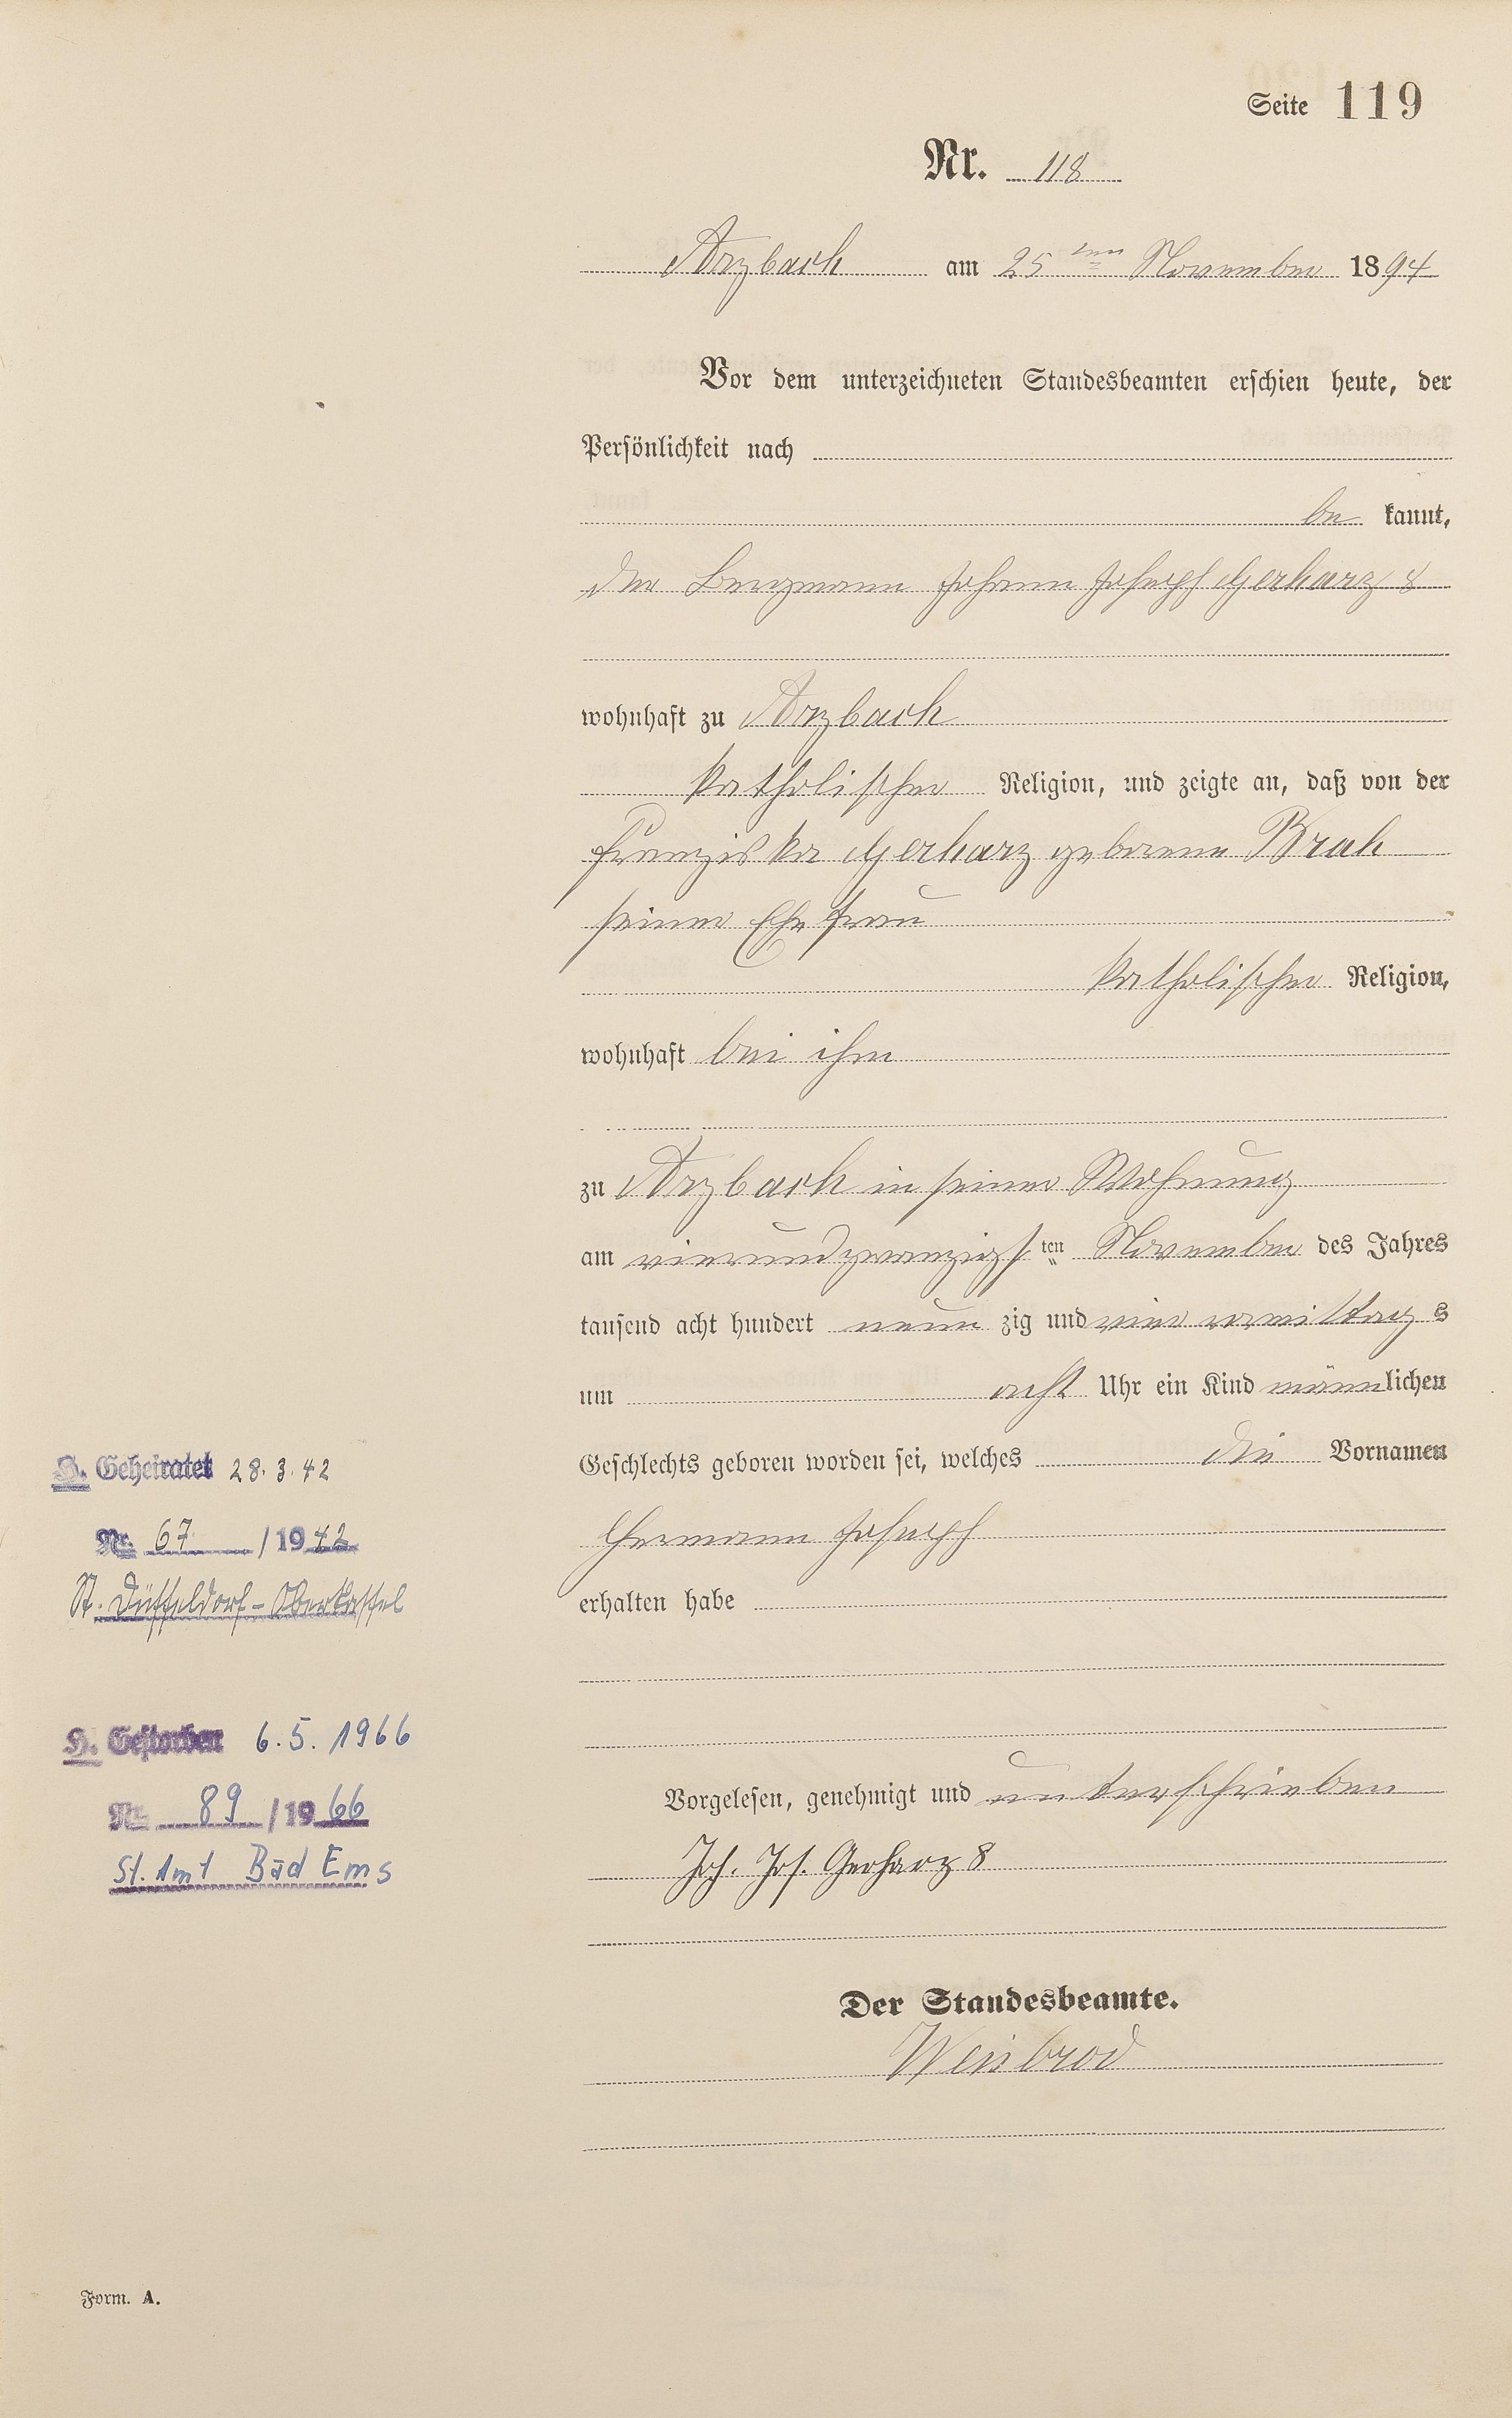 Seite 119
Nr. 118
Arzbach am 25ten November 1894
Vor dem unterzeichneten Standesbeamten erschien heute, der
Persönlichkeit nach
be kannt,
der Bergmann Johann Joseph Gerharz 8
wohnhaft zu Arzbach
katholischer Religion, und zeigte an, daß von der
Franziska Gerharz geborene Brah
seiner Ehefrau
katholischer Religion,
wohnhaft bei ihm
zu Arzbach in seiner Wohnung
am vierundzwanzigsten November des Jahres
tausend acht hundert neun zig und vier vormittags
um acht Uhr ein Kind männlichen
Geschlechts geboren worden sei, welches die Vornamen
Hermann Joseph
erhalten habe
Vorgelesen, genehmigt und unterschrieben
Joh. Jos. Gerharz 8
Der Standesbeamte.
Weisbrod
H. Geheiratet 28.3.42
Nr. 67 / 1942
St. Düsseldorf-Oberkassel
H. Gestorben 6.5.1966
Nr. 89 / 1966
St. Amt Bad Ems
Form. A.